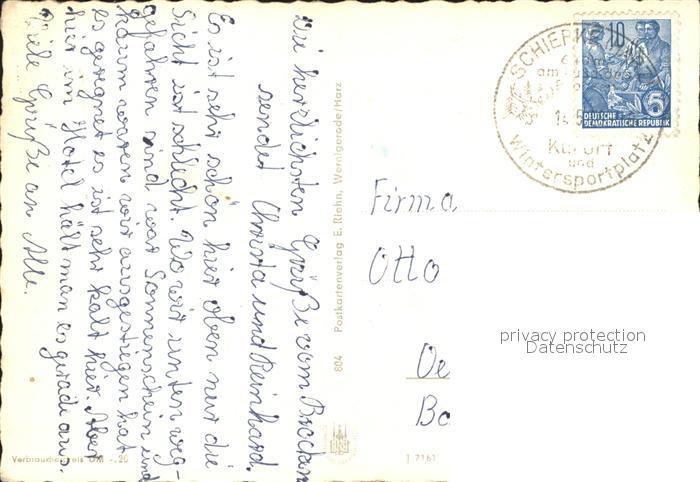 Die herzlichsten Grüße vom Brocken
sendet Christa und Reinhard.
Es ist sehr schön hier oben nur die
Sicht ist schlecht. Wo wir unten weg-
gefahren sind war Sonnenschein und
kaum waren wir ausgestiegen hat
es geregnet es ist sehr kalt hier. Aber
hier im Hotel hält man es gerade aus.
Viele Grüße an Alle.
Verbraucherpreis DM -.20
804 Postkartenverlag E. Riehn, Wernigerode/Harz
J 7161
SCHIERKE
am
Kurort
und
Wintersportplatz
10
5
DEUTSCHE
DEMOKRATISCHE REPUBLIK
Firma
Otto
Oe
Bo
privacy protection
Datenschutz